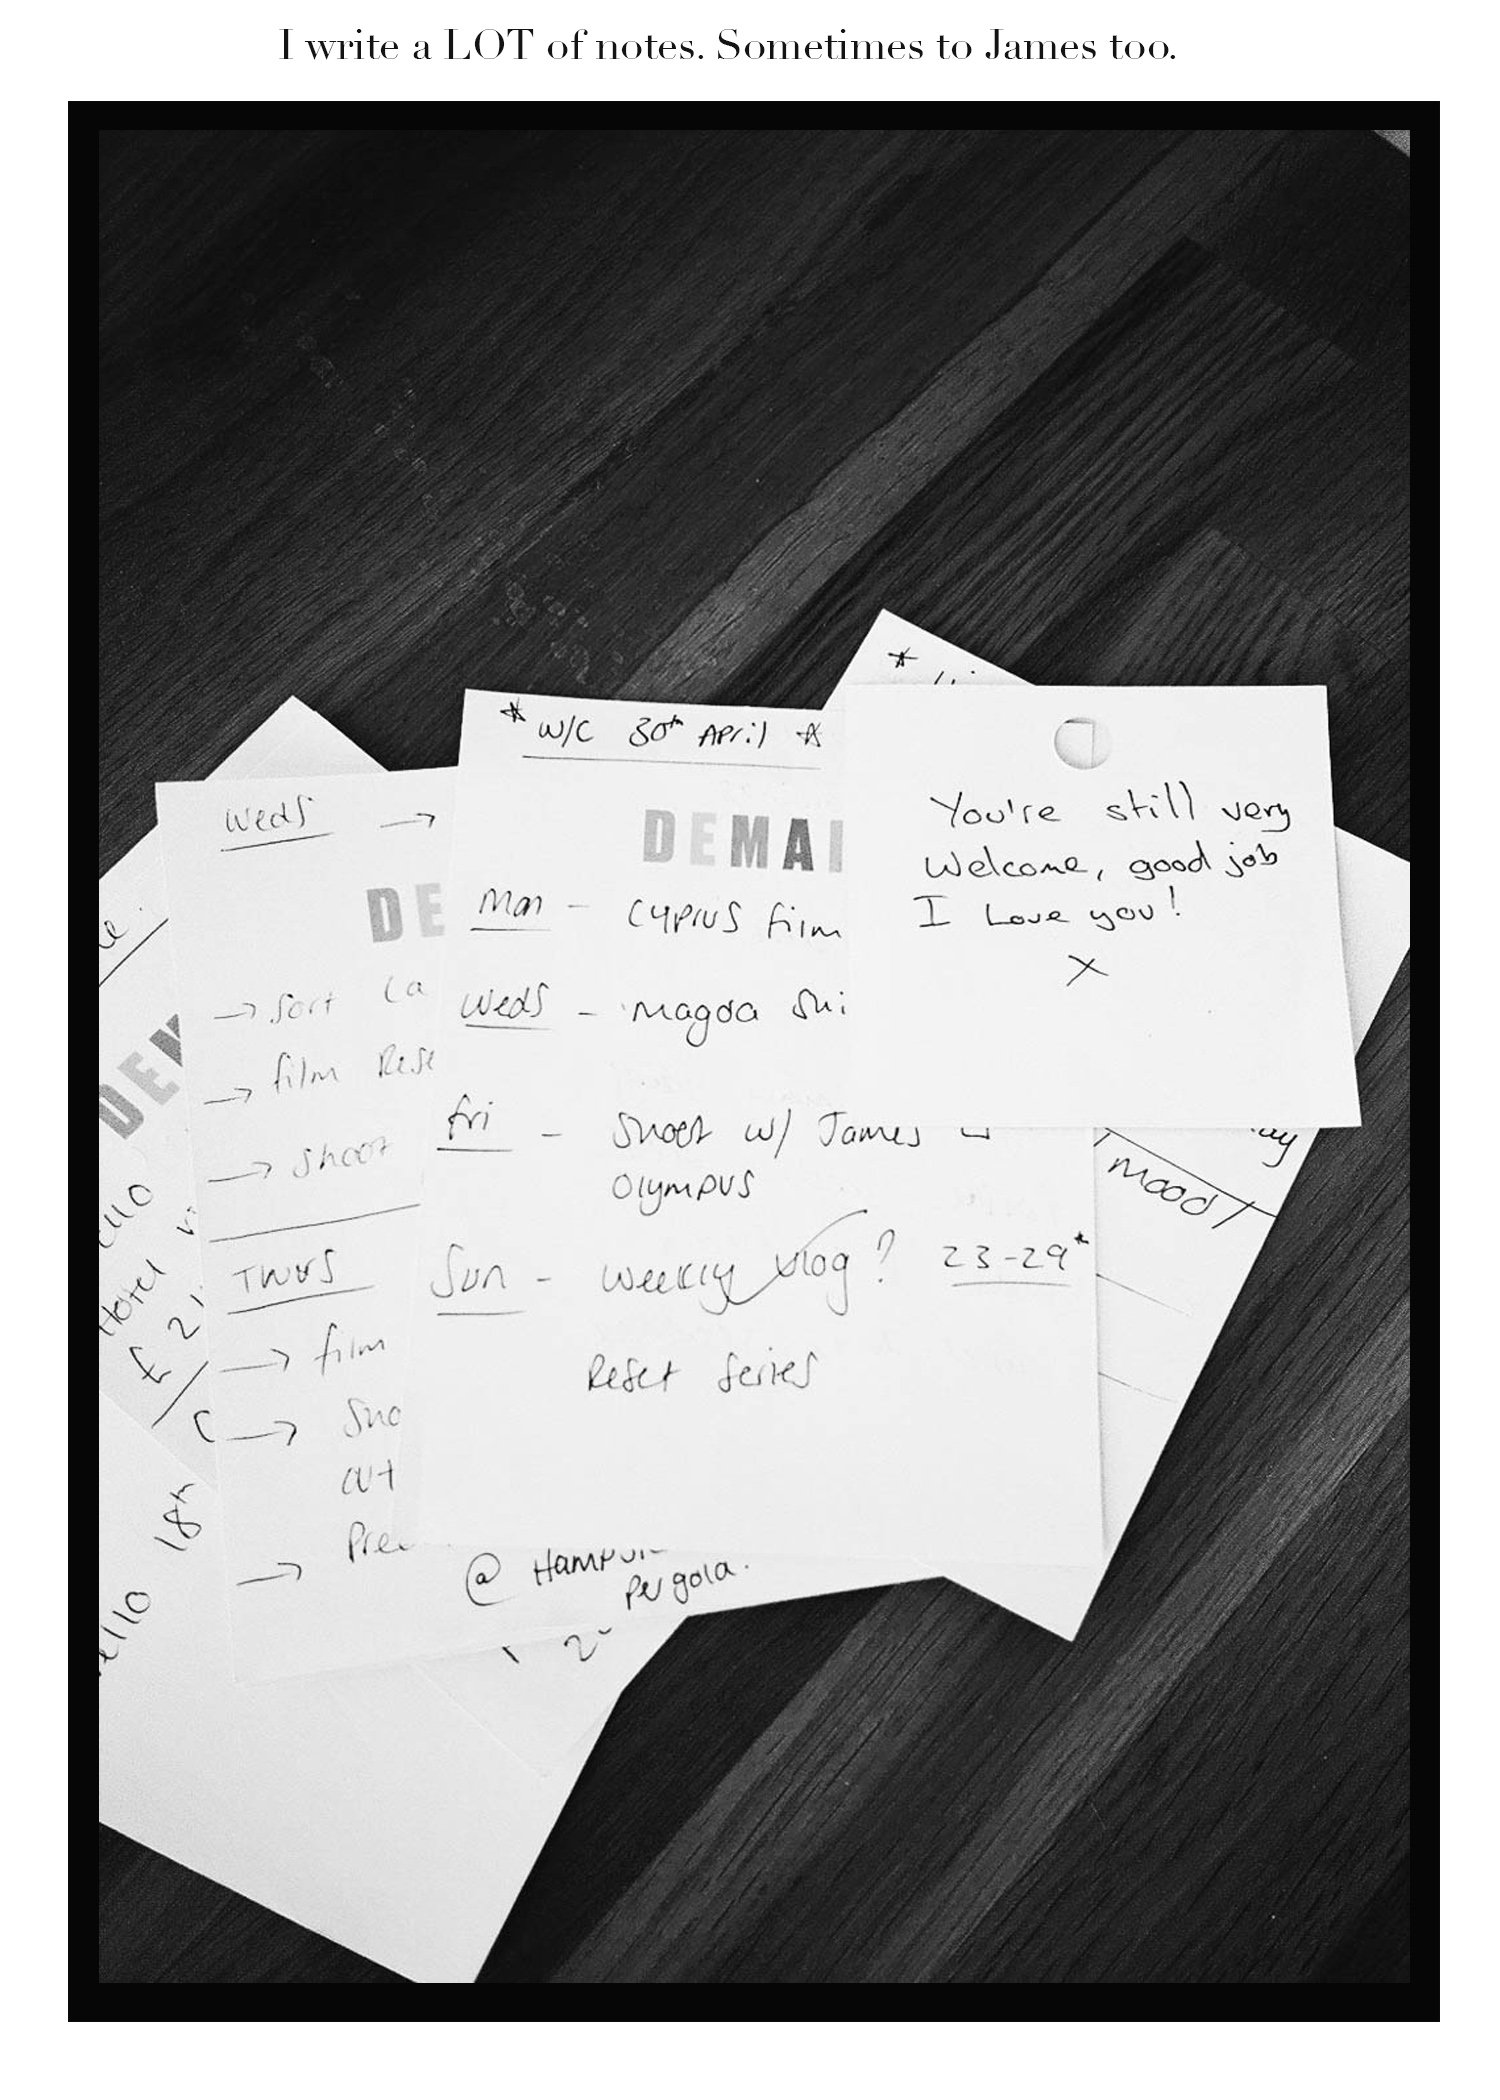 I write a LOT of notes. Sometimes to James too.
W/C 30th April
DEMAI
Mon - Cyprus film
Weds - Magda Shi
Fri - Shoot w/ James
Olympus
Sun - Weekly vlog? 23-29*
Reset Series
You're still very
welcome, good job
I Love you!
X
Weds →
DE
→ Sort Ca
→ film Rese
→ shoot
Thurs
→ film
→ Sho
out
→ Pre
@
Pergola.
mood
DEM
Hotel
£ 21
18th